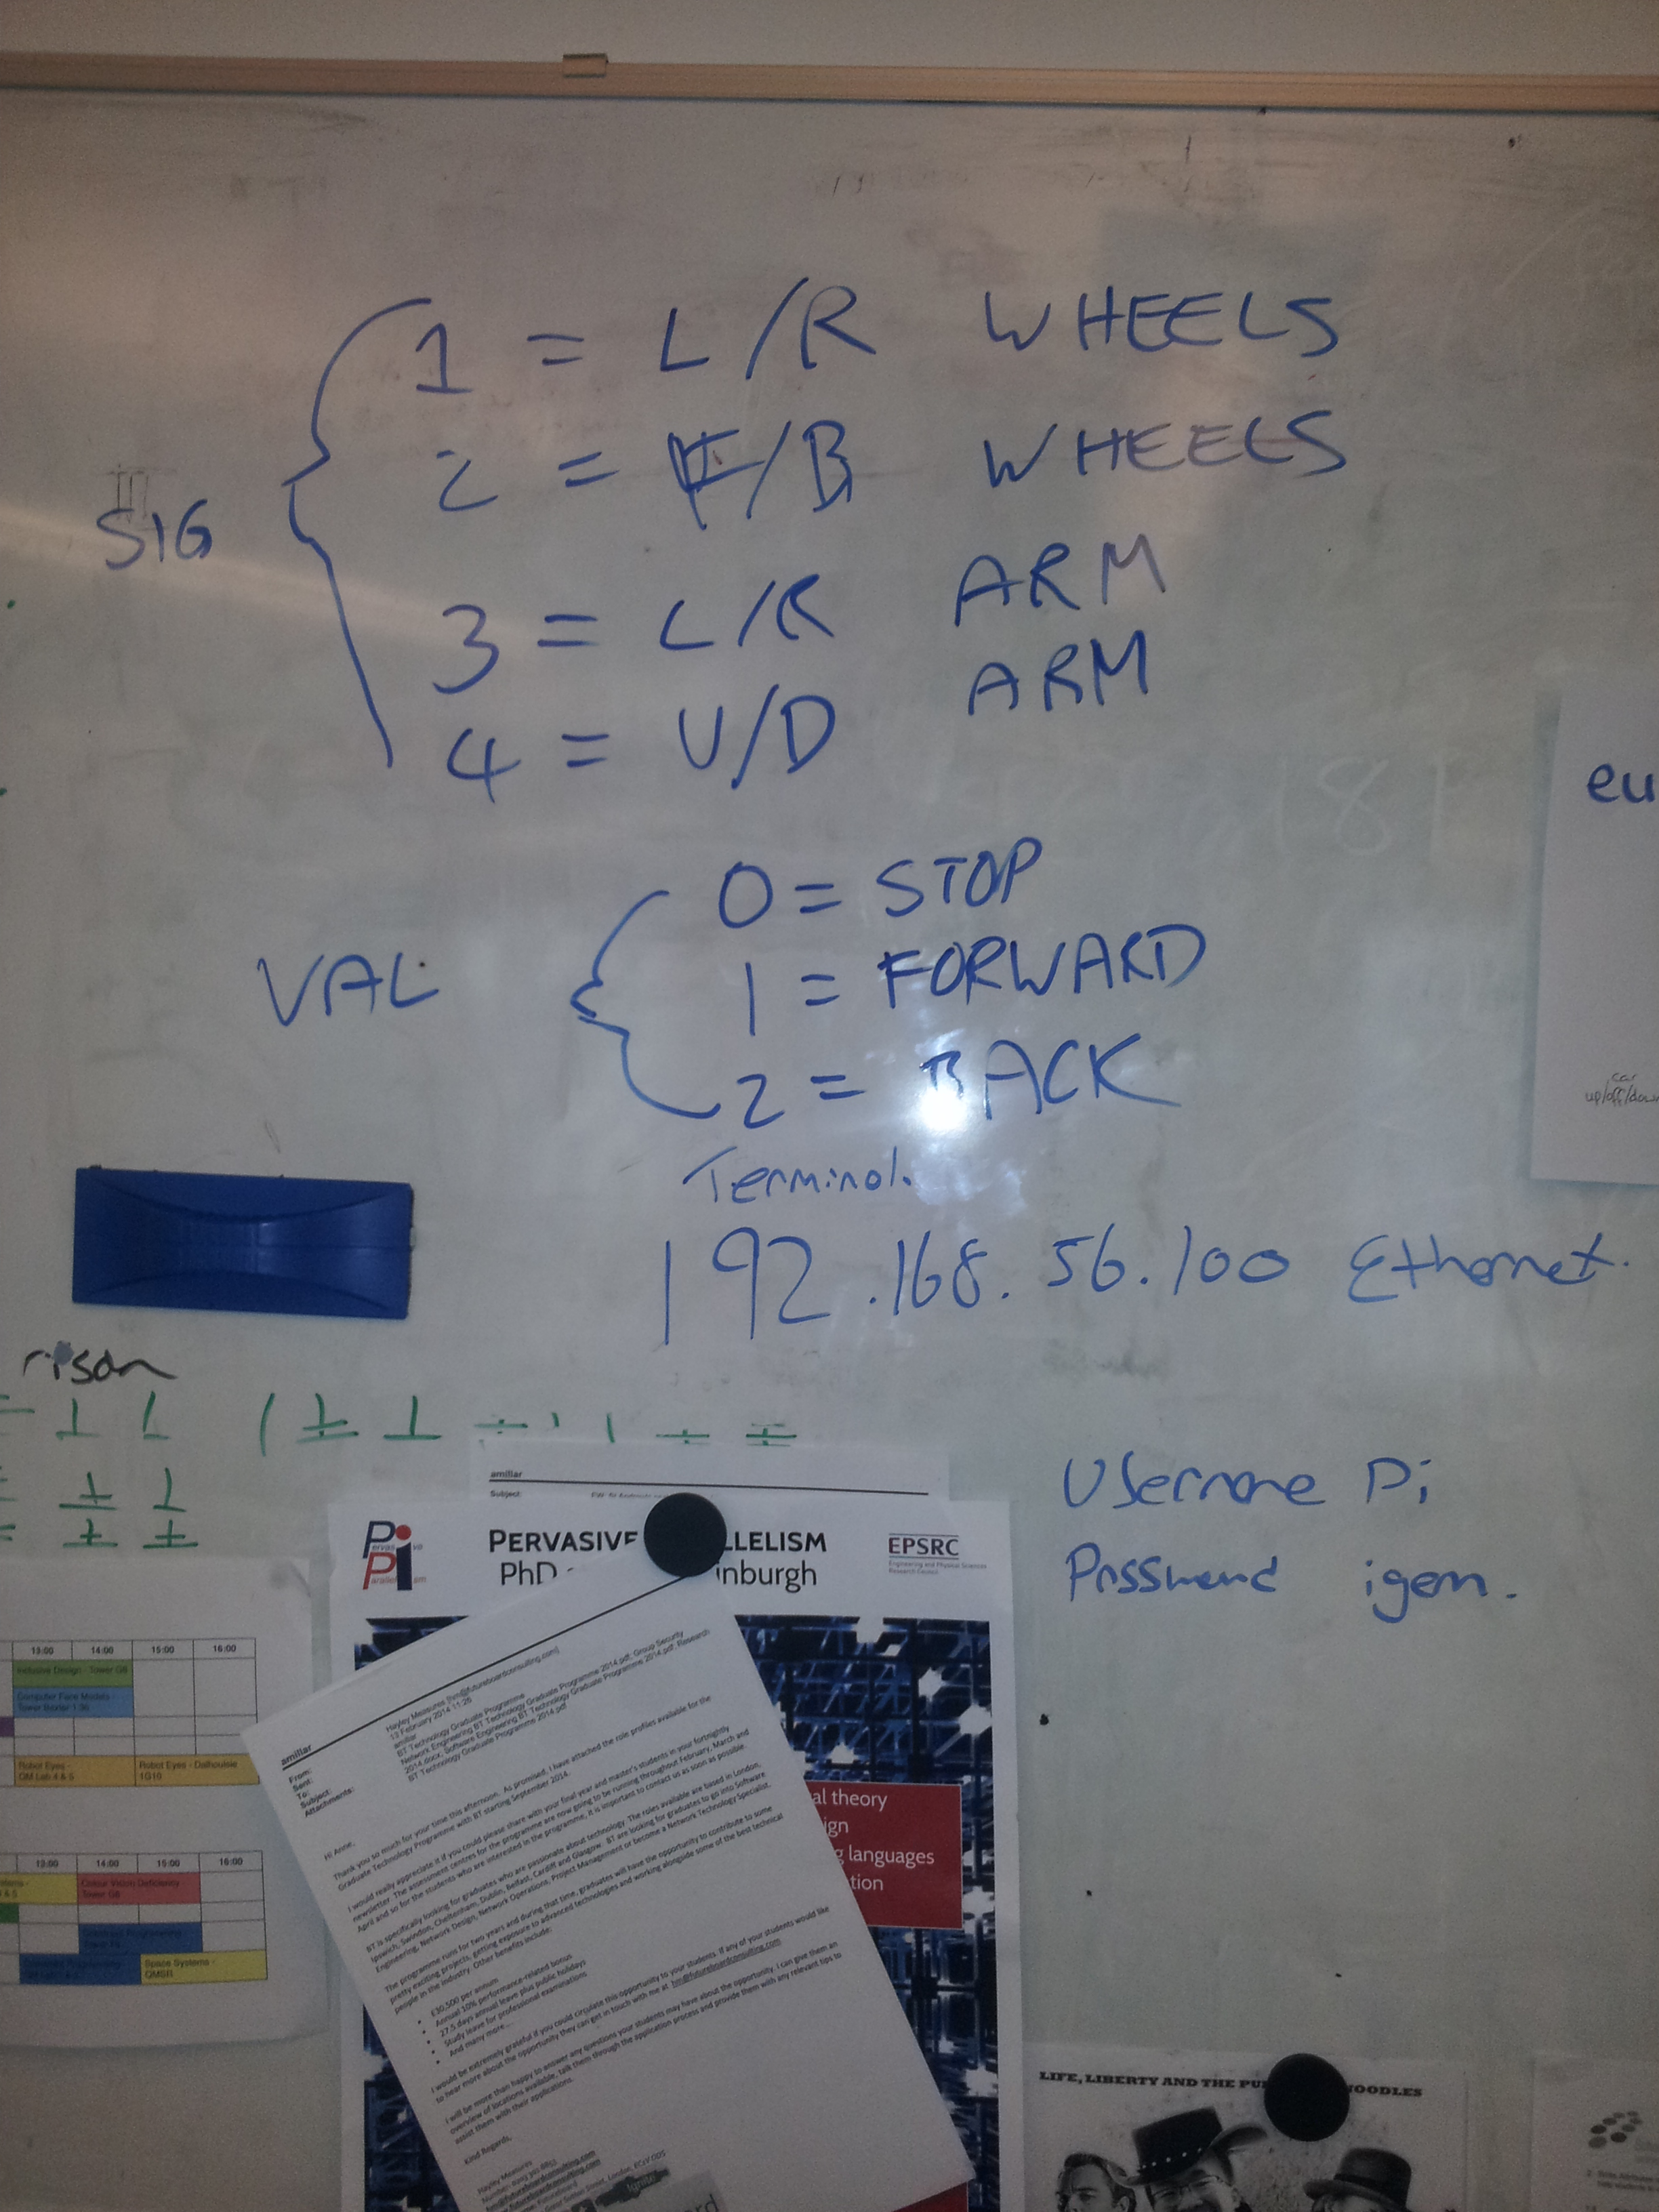 1 = L/R WHEELS
2 = F/B WHEELS
SIG
3 = L/R ARM
4 = U/D ARM
eu
0 = STOP
VAL
1 = FORWARD
2 = BACK
car
up/off/down
Terminal.
192.168.56.100 Ethernet.
rison
Username Pi
Password igem.
amillar
Subject:
PERVASIVE LLELISM
PhD inburgh
EPSRC
Engineering and Physical Sciences
Research Council
13:00 14:00 15:00 16:00
Inclusive Design - Tower G8
Computer Face Models -
Robot Eyes - Robot Eyes - Dalhousie
QM Lab 4 & 5 1G10
13:00 14:00 15:00 16:00
Colour Vision Deficiency
Tower G8
Space Systems -
QMSR
amillar
From: Hayley Measures [hm@futureboardconsulting.com]
Sent: 13 February 2014 11:25
To: amillar
Subject: BT Technology Graduate Programme
Attachments: BT Technology Graduate Programme 2014.pdf; Group Security
Network Engineering BT Technology Graduate Programme 2014.pdf; Research
2014.docx; Software Engineering BT Technology Graduate Programme 2014.pdf
BT Technology Graduate Programme 2014.pdf
Hi Anne,
Thank you so much for your time this afternoon. As promised, I have attached the role profiles available for the
Graduate Technology Programme with BT starting September 2014.
I would really appreciate it if you could please share with your final year and master's students in your fortnightly
newsletter. The assessment centres for the programme are now going to be running throughout February, March and
April and so for the students who are interested in the programme, it is important to contact us as soon as possible.
BT is specifically looking for graduates who are passionate about technology. The roles available are based in London,
Ipswich, Swindon, Cheltenham, Dublin, Belfast, Cardiff and Glasgow. BT are looking for graduates to go into Software
Engineering, Network Design, Network Operations, Project Management or become a Network Technology Specialist.
The programme runs for two years and during that time, graduates will have the opportunity to contribute to some
pretty exciting projects, getting exposure to advanced technologies and working alongside some of the best technical
people in the industry. Other benefits include:
• £30,500 per annum
• Annual 10% performance-related bonus
• 27.5 days annual leave plus public holidays
• Study leave for professional examinations
• And many more...
I would be extremely grateful if you could circulate this opportunity to your students. If any of your students would like
to hear more about the opportunity they can get in touch with me at hm@futureboardconsulting.com
I will be more than happy to answer any questions your students may have about the opportunity. I can give them an
overview of locations available, talk them through the application process and provide them with any relevant tips to
assist them with their applications.
Kind Regards,
Hayley Measures
al theory
ign
g languages
tion
LIFE, LIBERTY AND THE PU OODLES